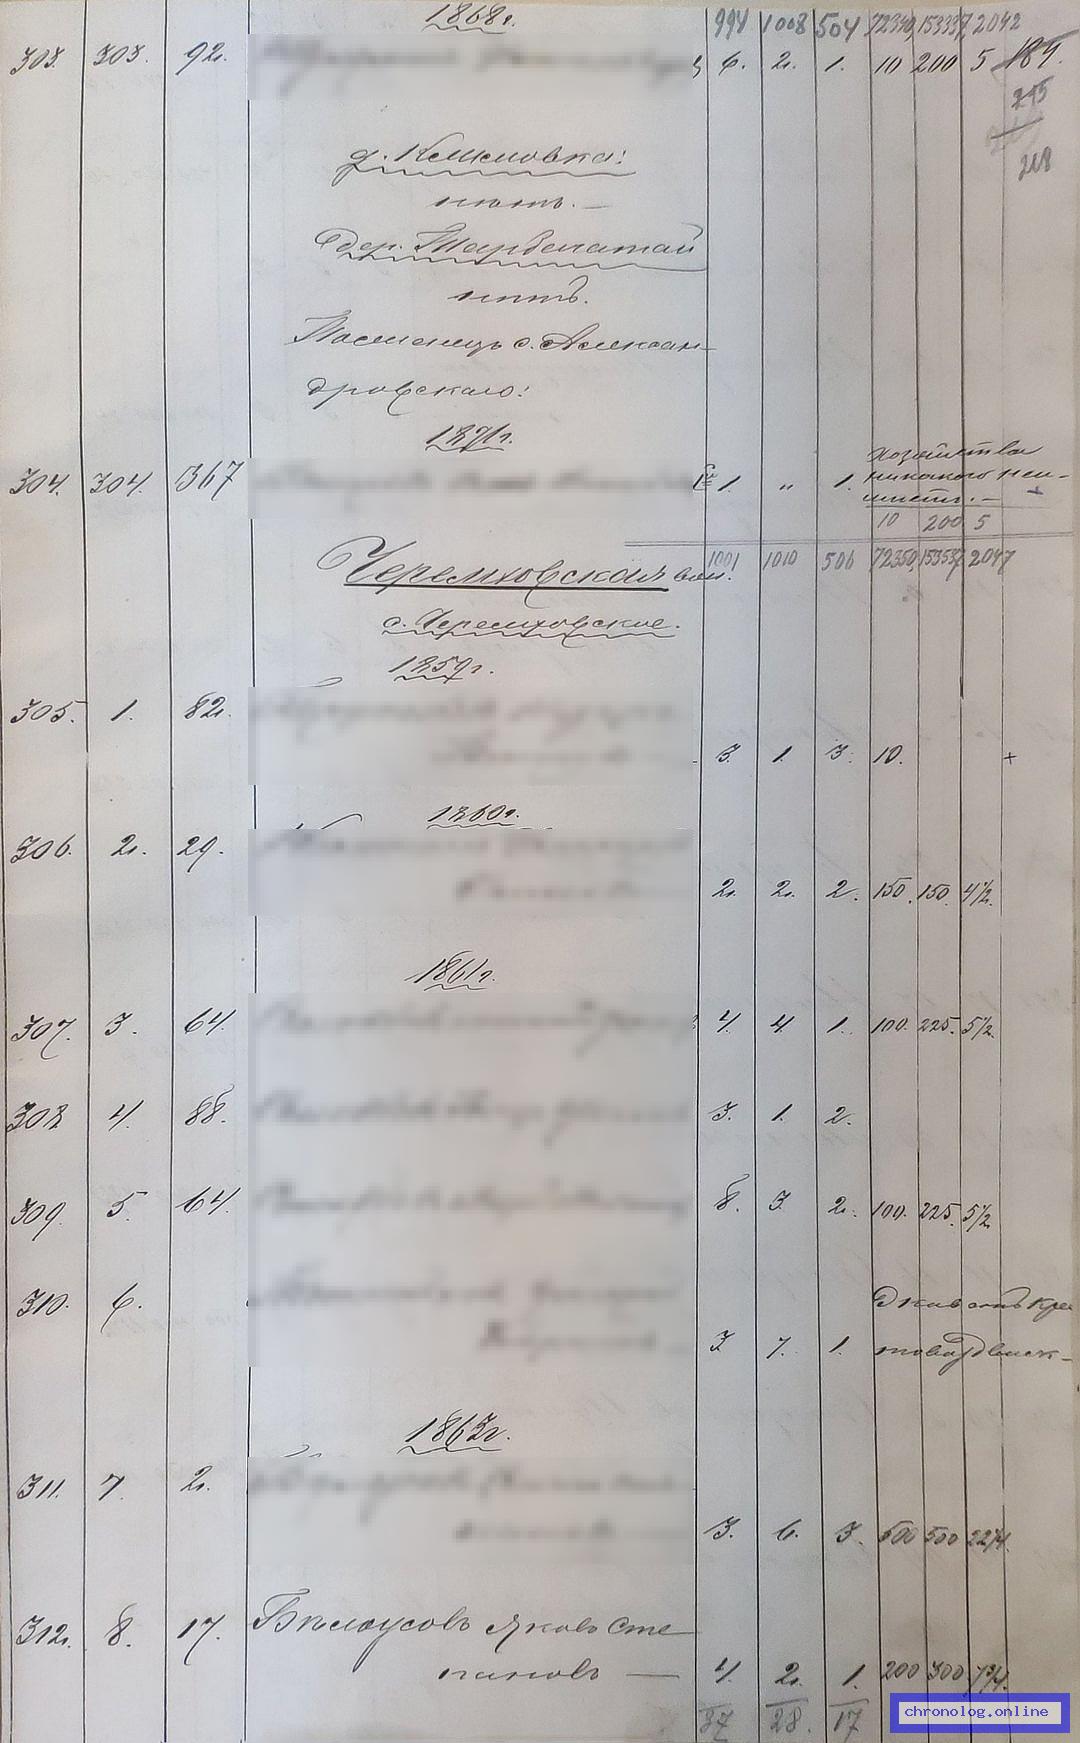 1868 г. 994 1008 504 72340 153337 2042
303. 303. 92. 6. 2. 1. 10 200 5 184.
215
218
нѣтъ.—
дер. Тарбагатай
нѣтъ.
Поселенцъ с. Алексан-
дровскаго:
1871 г.
304. 304. 367 1. „ 1. хозяйства
никакого неи-
10 200 5
Черемховская вол. 1001 1010 506 72350 153537 2047
с. Черемховское.
1859 г.
305. 1. 82.
3. 1. 3. 10. +
1860 г.
306. 2. 29.
2. 2. 2. 150. 150. 4½.
1861 г.
307. 3. 64. 4. 4. 1. 100. 225. 5½.
308 4. 88. 3. 1. 2.
309. 5. 64. 8. 3. 2. 100. 225. 5½
310. 6.
3 7. 1.
1863 г.
311. 7. 2.
3. 6. 3. 500 500 22¾.
312. 8. 17. Бѣлоусовъ Яковъ Сте
пановъ — 4. 2. 1. 200 300 7¾.
37 28. 17
chronolog.online